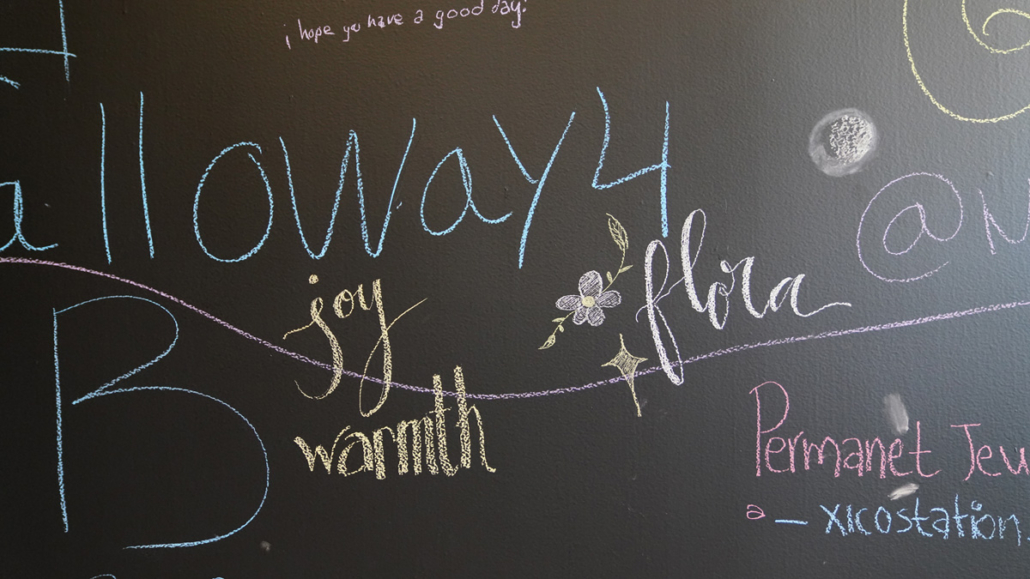 ¡hope you have a good day!
alloway4
@
joy
flora
B
warmth
Permanet Jew
a - xicostation.